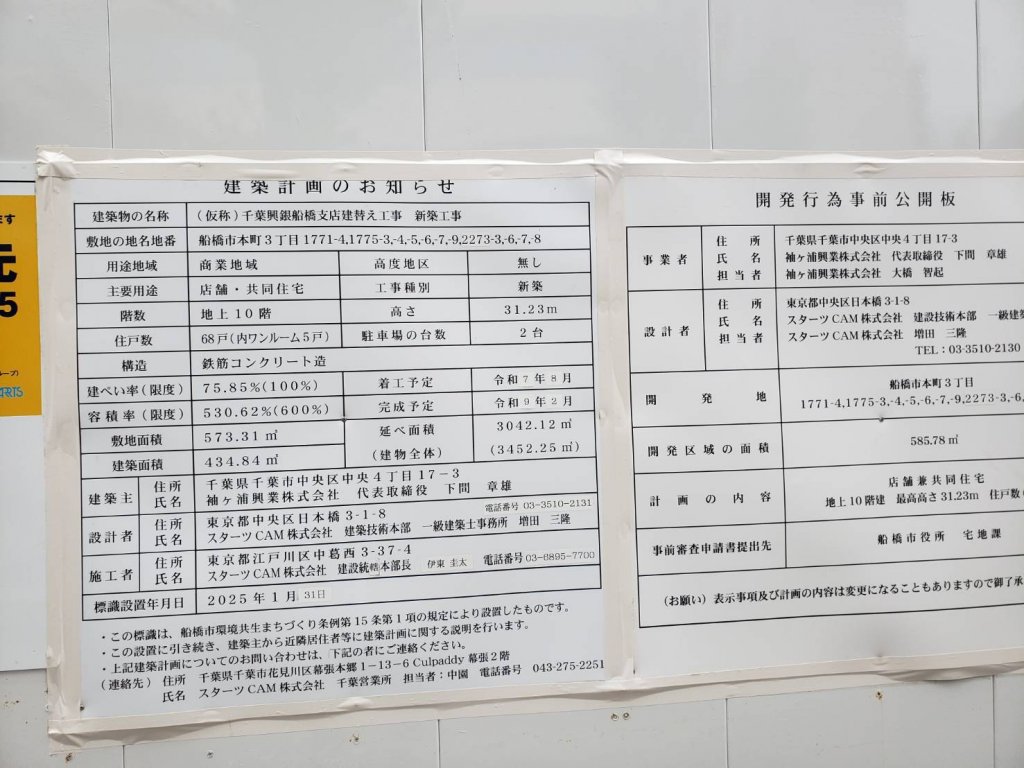 ます
元
5
ループ)
ARTS
建築計画のお知らせ
建築物の名称 (仮称)千葉興銀船橋支店建替え工事 新築工事
敷地の地名地番 船橋市本町3丁目1771-4,1775-3,-4,-5,-6,-7,-9,2273-3,-6,-7,-8
用途地域 商業地域 高度地区 無し
主要用途 店舗・共同住宅 工事種別 新築
階数 地上10階 高さ 31.23m
住戸数 68戸(内ワンルーム5戸) 駐車場の台数 2台
構造 鉄筋コンクリート造
建ぺい率(限度) 75.85%(100%) 着工予定 令和7年8月
容積率(限度) 530.62%(600%) 完成予定 令和9年2月
敷地面積 573.31㎡ 延べ面積 3042.12㎡
建築面積 434.84㎡ (建物全体) (3452.25㎡)
建築主 住所 千葉県千葉市中央区中央4丁目17-3
氏名 袖ヶ浦興業株式会社 代表取締役 下間 章雄
設計者 住所 東京都中央区日本橋3-1-8 電話番号 03-3510-2131
氏名 スターツCAM株式会社 建築技術本部 一級建築士事務所 増田 三隆
施工者 住所 東京都江戸川区中葛西3-37-4
氏名 スターツCAM株式会社 建設統轄本部長 伊東 圭太 電話番号 03-6895-7700
標識設置年月日 2025年1月31日
・この標識は、船橋市環境共生まちづくり条例第15条第1項の規定により設置したものです。
・この設置に引き続き、建築主から近隣居住者等に建築計画に関する説明を行います。
・上記建築計画についてのお問い合わせは、下記の者にご連絡ください。
(連絡先) 住所 千葉県千葉市花見川区幕張本郷1-13-6 Culpaddy 幕張2階
氏名 スターツCAM株式会社 千葉営業所 担当者:中園 電話番号 043-275-2251
開発行為事前公開板
事業者 住所 千葉県千葉市中央区中央4丁目17-3
氏名 袖ヶ浦興業株式会社 代表取締役 下間 章雄
担当者 袖ヶ浦興業株式会社 大橋 智起
設計者 住所 東京都中央区日本橋3-1-8
氏名 スターツCAM株式会社 建設技術本部 一級建築
担当者 スターツCAM株式会社 増田 三隆
TEL:03-3510-2130
開発地 船橋市本町3丁目
1771-4,1775-3,-4,-5,-6,-7,-9,2273-3,-6,
開発区域の面積 585.78㎡
計画の内容 店舗兼共同住宅
地上10階建 最高高さ31.23m 住戸数
事前審査申請書提出先 船橋市役所 宅地課
(お願い)表示事項及び計画の内容は変更になることもありますので御了承